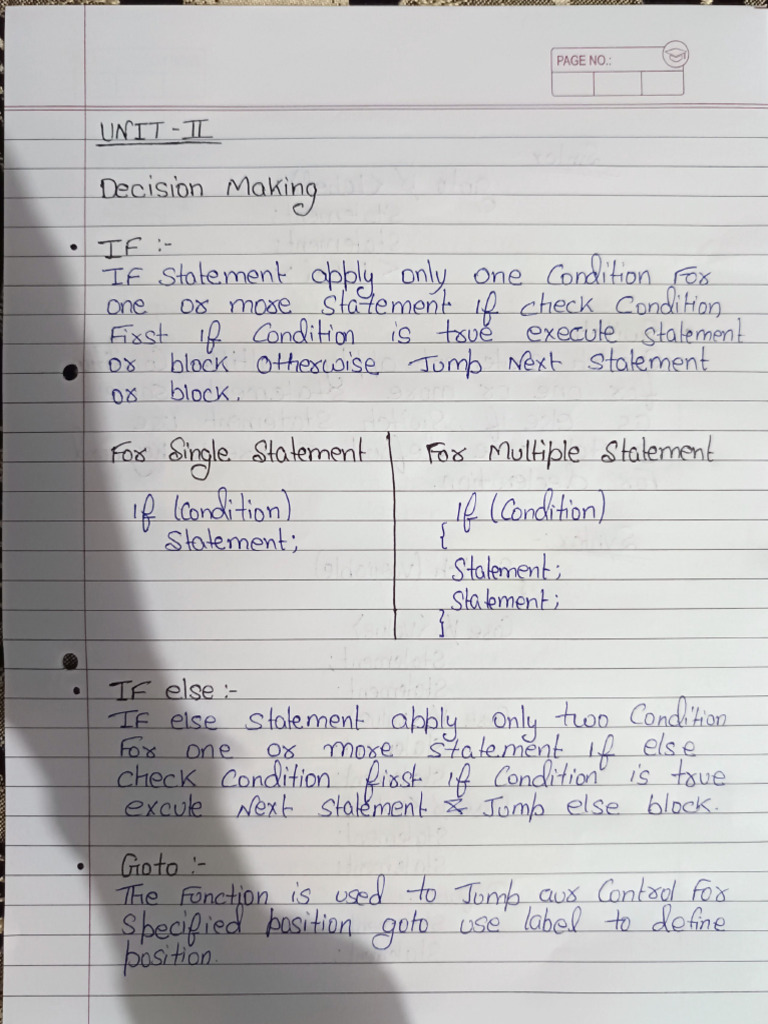 PAGE NO.:
UNIT - II
Decision Making
• IF :-
IF Statement apply only one Condition For
one or more Statement if check Condition
First if Condition is true execute Statement
or block otherwise Jump Next Statement
or block.
For Single Statement
if (Condition)
Statement;
For Multiple Statement
if (Condition)
{
Statement;
Statement;
}
• IF else :-
IF else Statement apply only two Condition
For one or more Statement if else
check Condition first if Condition is true
excute Next Statement & Jump else block.
• Goto :-
The Function is used to Jump our Control For
Specified position goto use label to define
position.